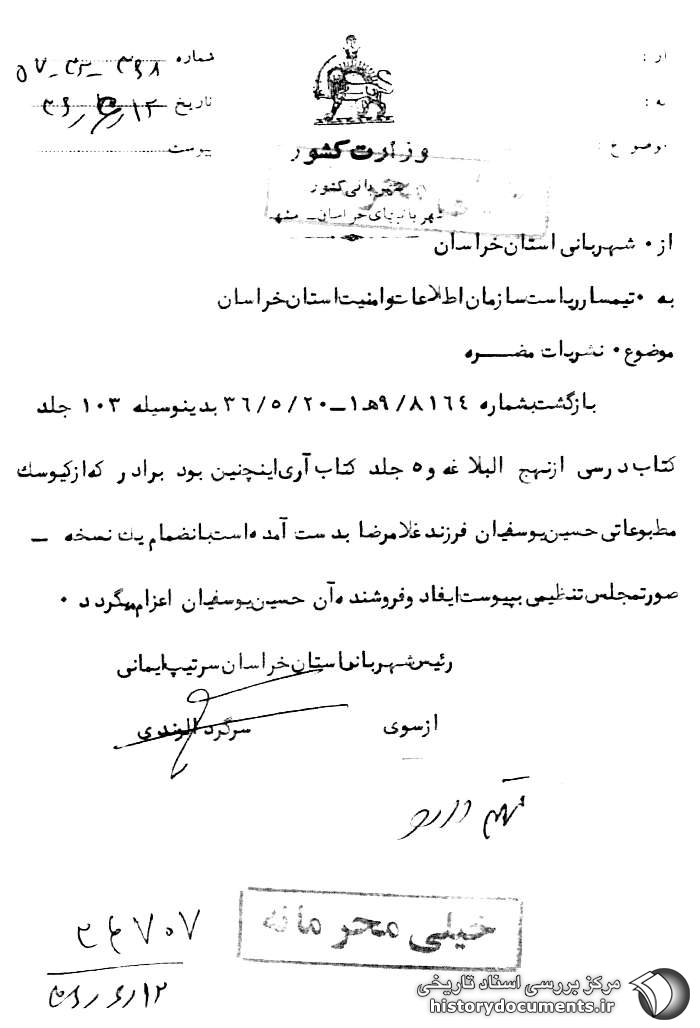 از :
شماره ۳۶۸-۳۳-۵۷
به :
تاریخ ۳۶/۶/۱۲
موضوع :
پیوست
وزارت کشور
شهربانی کشور
شهربانیهای خراسان - مشهد
از ۰ شهربانی استان خراسان
به ۰ تیمسار ریاست سازمان اطلاعات و امنیت استان خراسان
موضوع ۰ نشریات مضره
بازگشت بشماره ۸۱٦٤/۹ه‍ ۱ــ۳٦/۵/۲۰ بدینوسیله ۱۰۳ جلد
کتاب درسی از نهج البلاغه و ۵ جلد کتاب آری اینچنین بود برادر که از کیوسک
مطبوعاتی حسین یوسفیان فرزند غلامرضا بدست آمده است بانضمام یک نسخه ــ
صورتمجلس تنظیمی بپیوست ایفاد و فروشنده آن حسین یوسفیان اعزام میگردد ۰
رئیس شهربانیهای استان خراسان سرتیپ ایمانی
از سوی سرگرد الوندی
خیلی محرمانه
۷۰۷
۱۲/۶/۳۶
مرکز بررسی اسناد تاریخی
historydocuments.ir